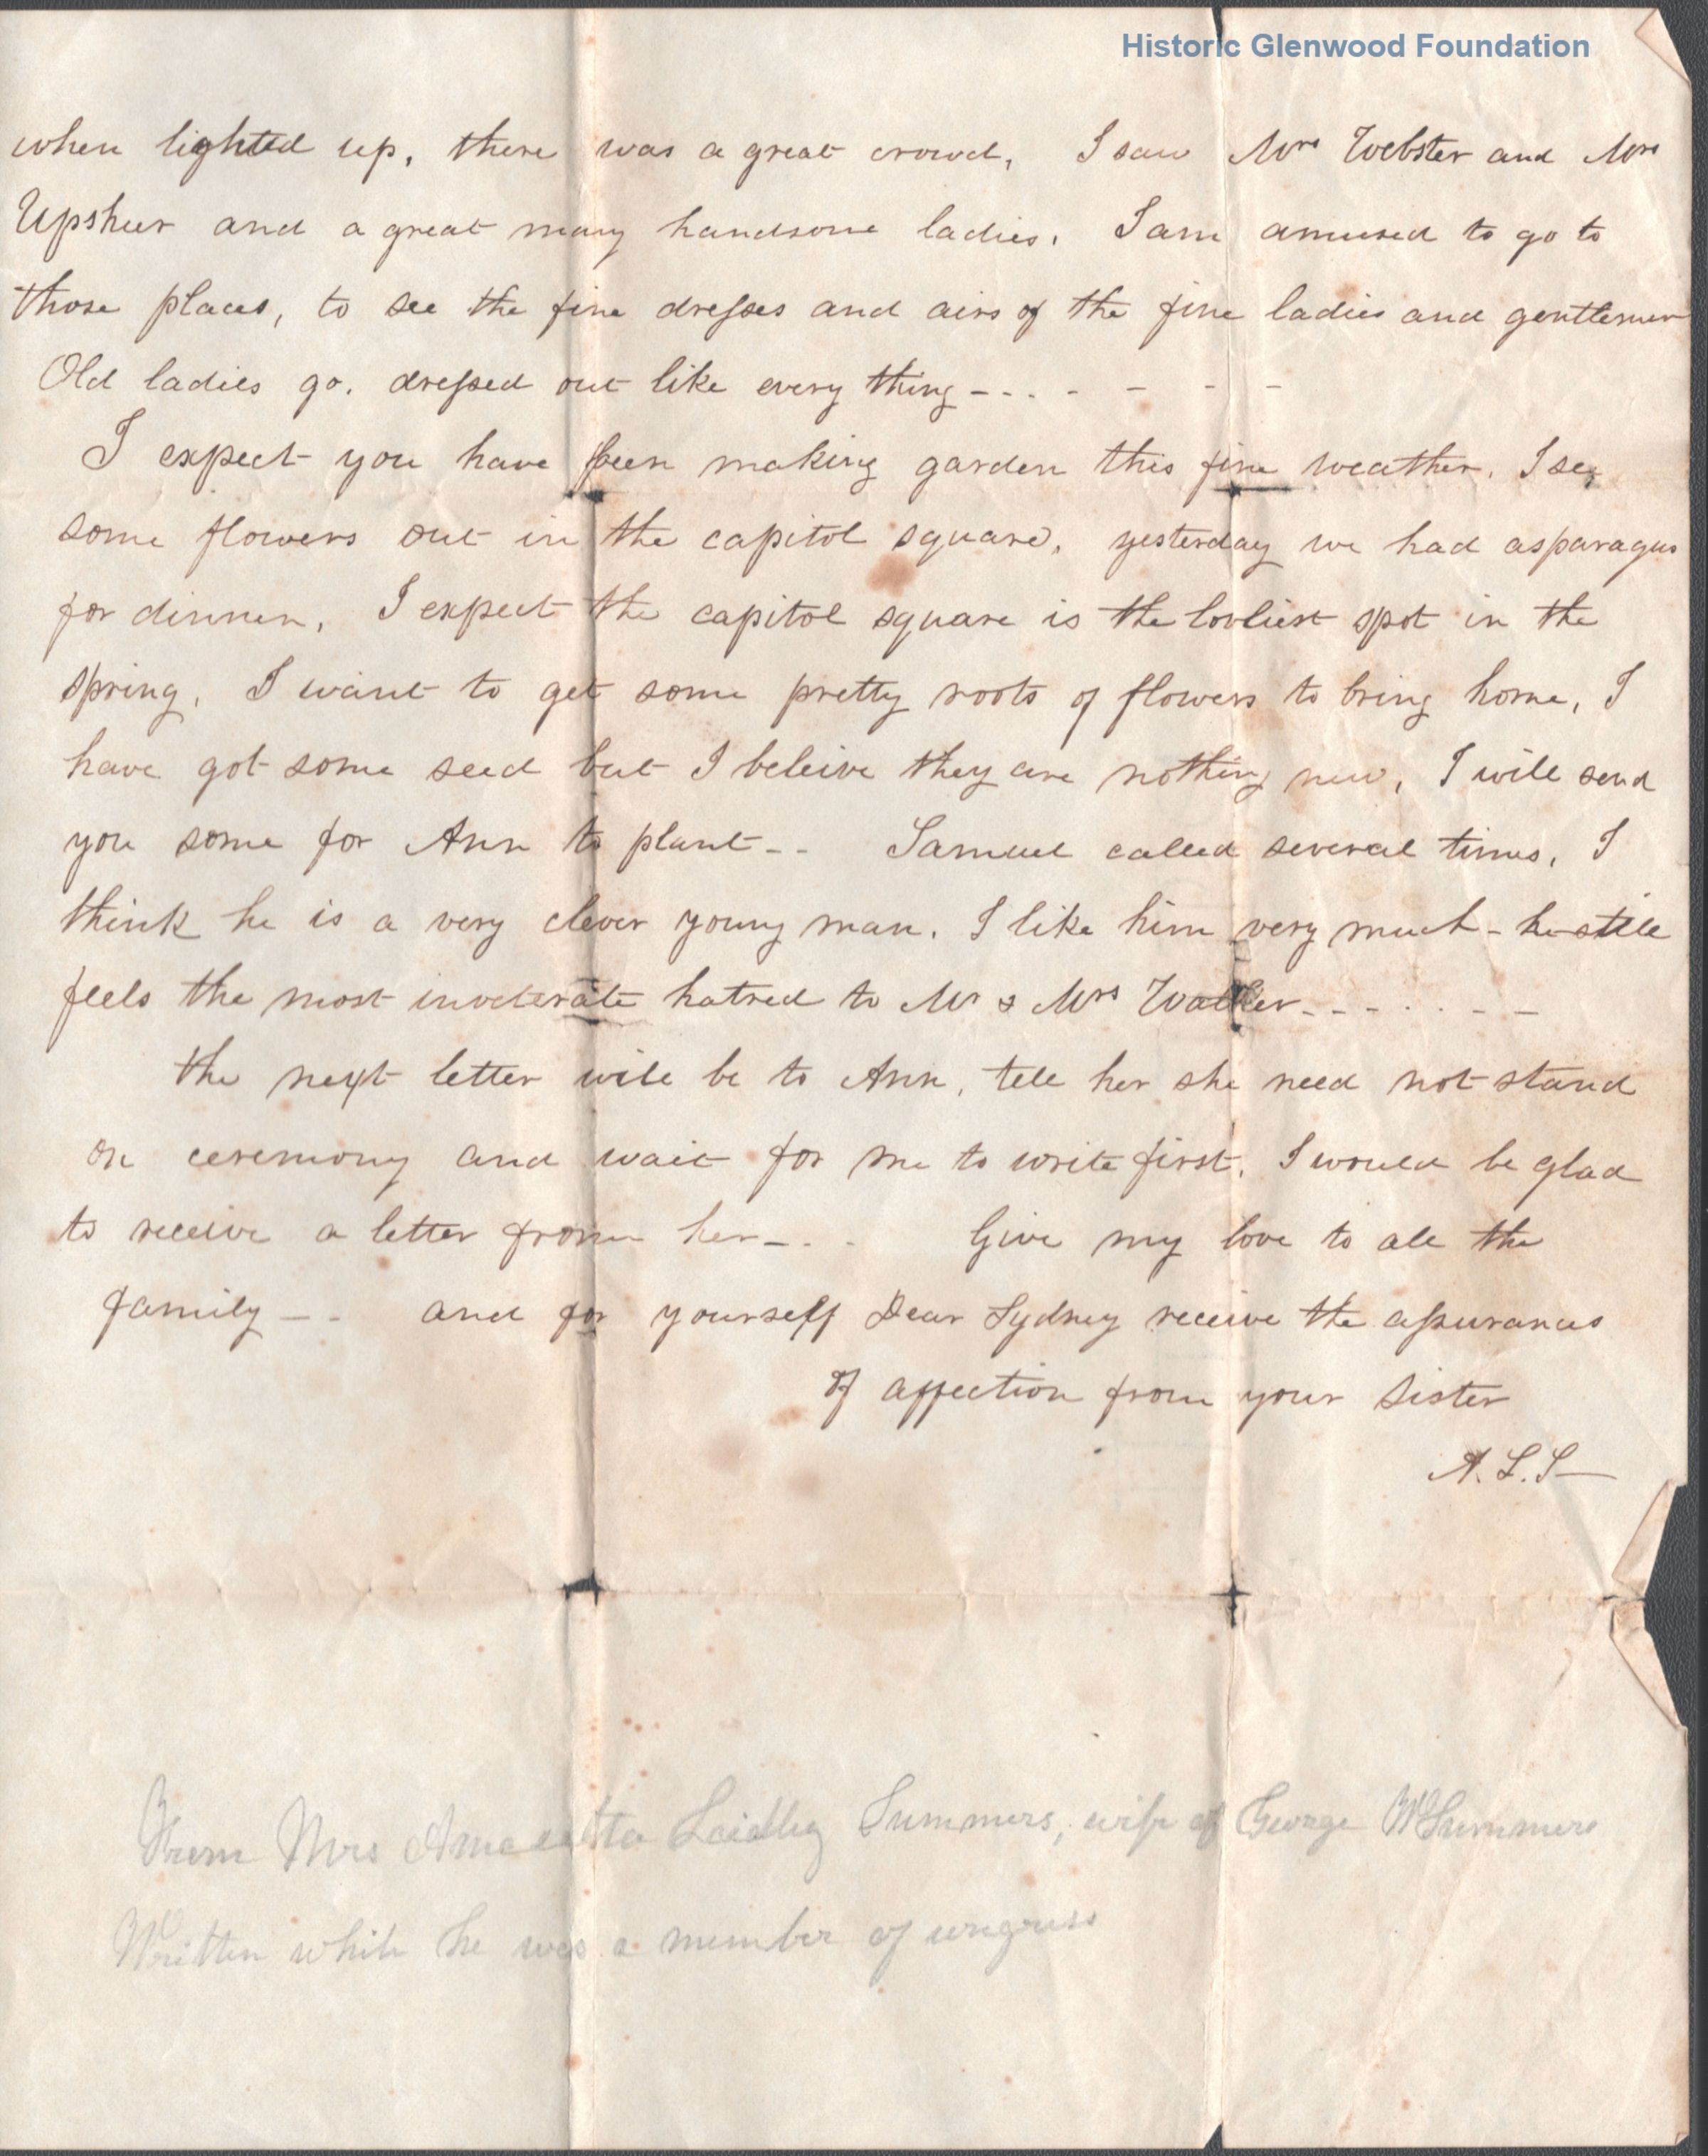 Historic Glenwood Foundation
when lighted up, there was a great crowd, I saw Mrs Webster and Mrs
Upshur and a great many handsome ladies. I am amused to go to
those places, to see the fine dresses and airs of the fine ladies and gentlemen
Old ladies go. dressed out like every thing - - - - - - -
I expect you have been making garden this fine weather. I see
some flowers out in the capitol square, yesterday we had asparagus
for dinner, I expect the capitol square is the lovliest spot in the
spring, I want to get some pretty roots of flowers to bring home, I
have got some seed but I beleive they are nothing new, I will send
you some for Ann to plant - - Samuel called several times, I
think he is a very clever young man. I like him very much - he still
feels the most inveterate hatred to Mr & Mrs Walker - - - - - - -
the next letter will be to Ann, tell her she need not stand
on ceremony and wait for me to write first. I would be glad
to receive a letter from her - - - Give my love to all the
family - - and for yourself Dear Sydney receive the assurances
of affection from your sister
A. L. S -
From Mrs Amacetta Laidley Summers, wife of George W Summers
Written while he was a member of congress